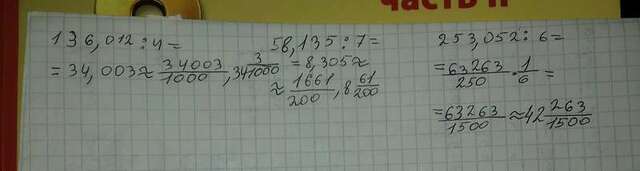 часть II
136,012:4=
=34,003≈34003/1000, 34 3/1000
58,135:7=
=8,305≈
≈1661/200, 8 61/200
253,052:6=
=63263/250·1/6=
=63263/1500≈42 263/1500